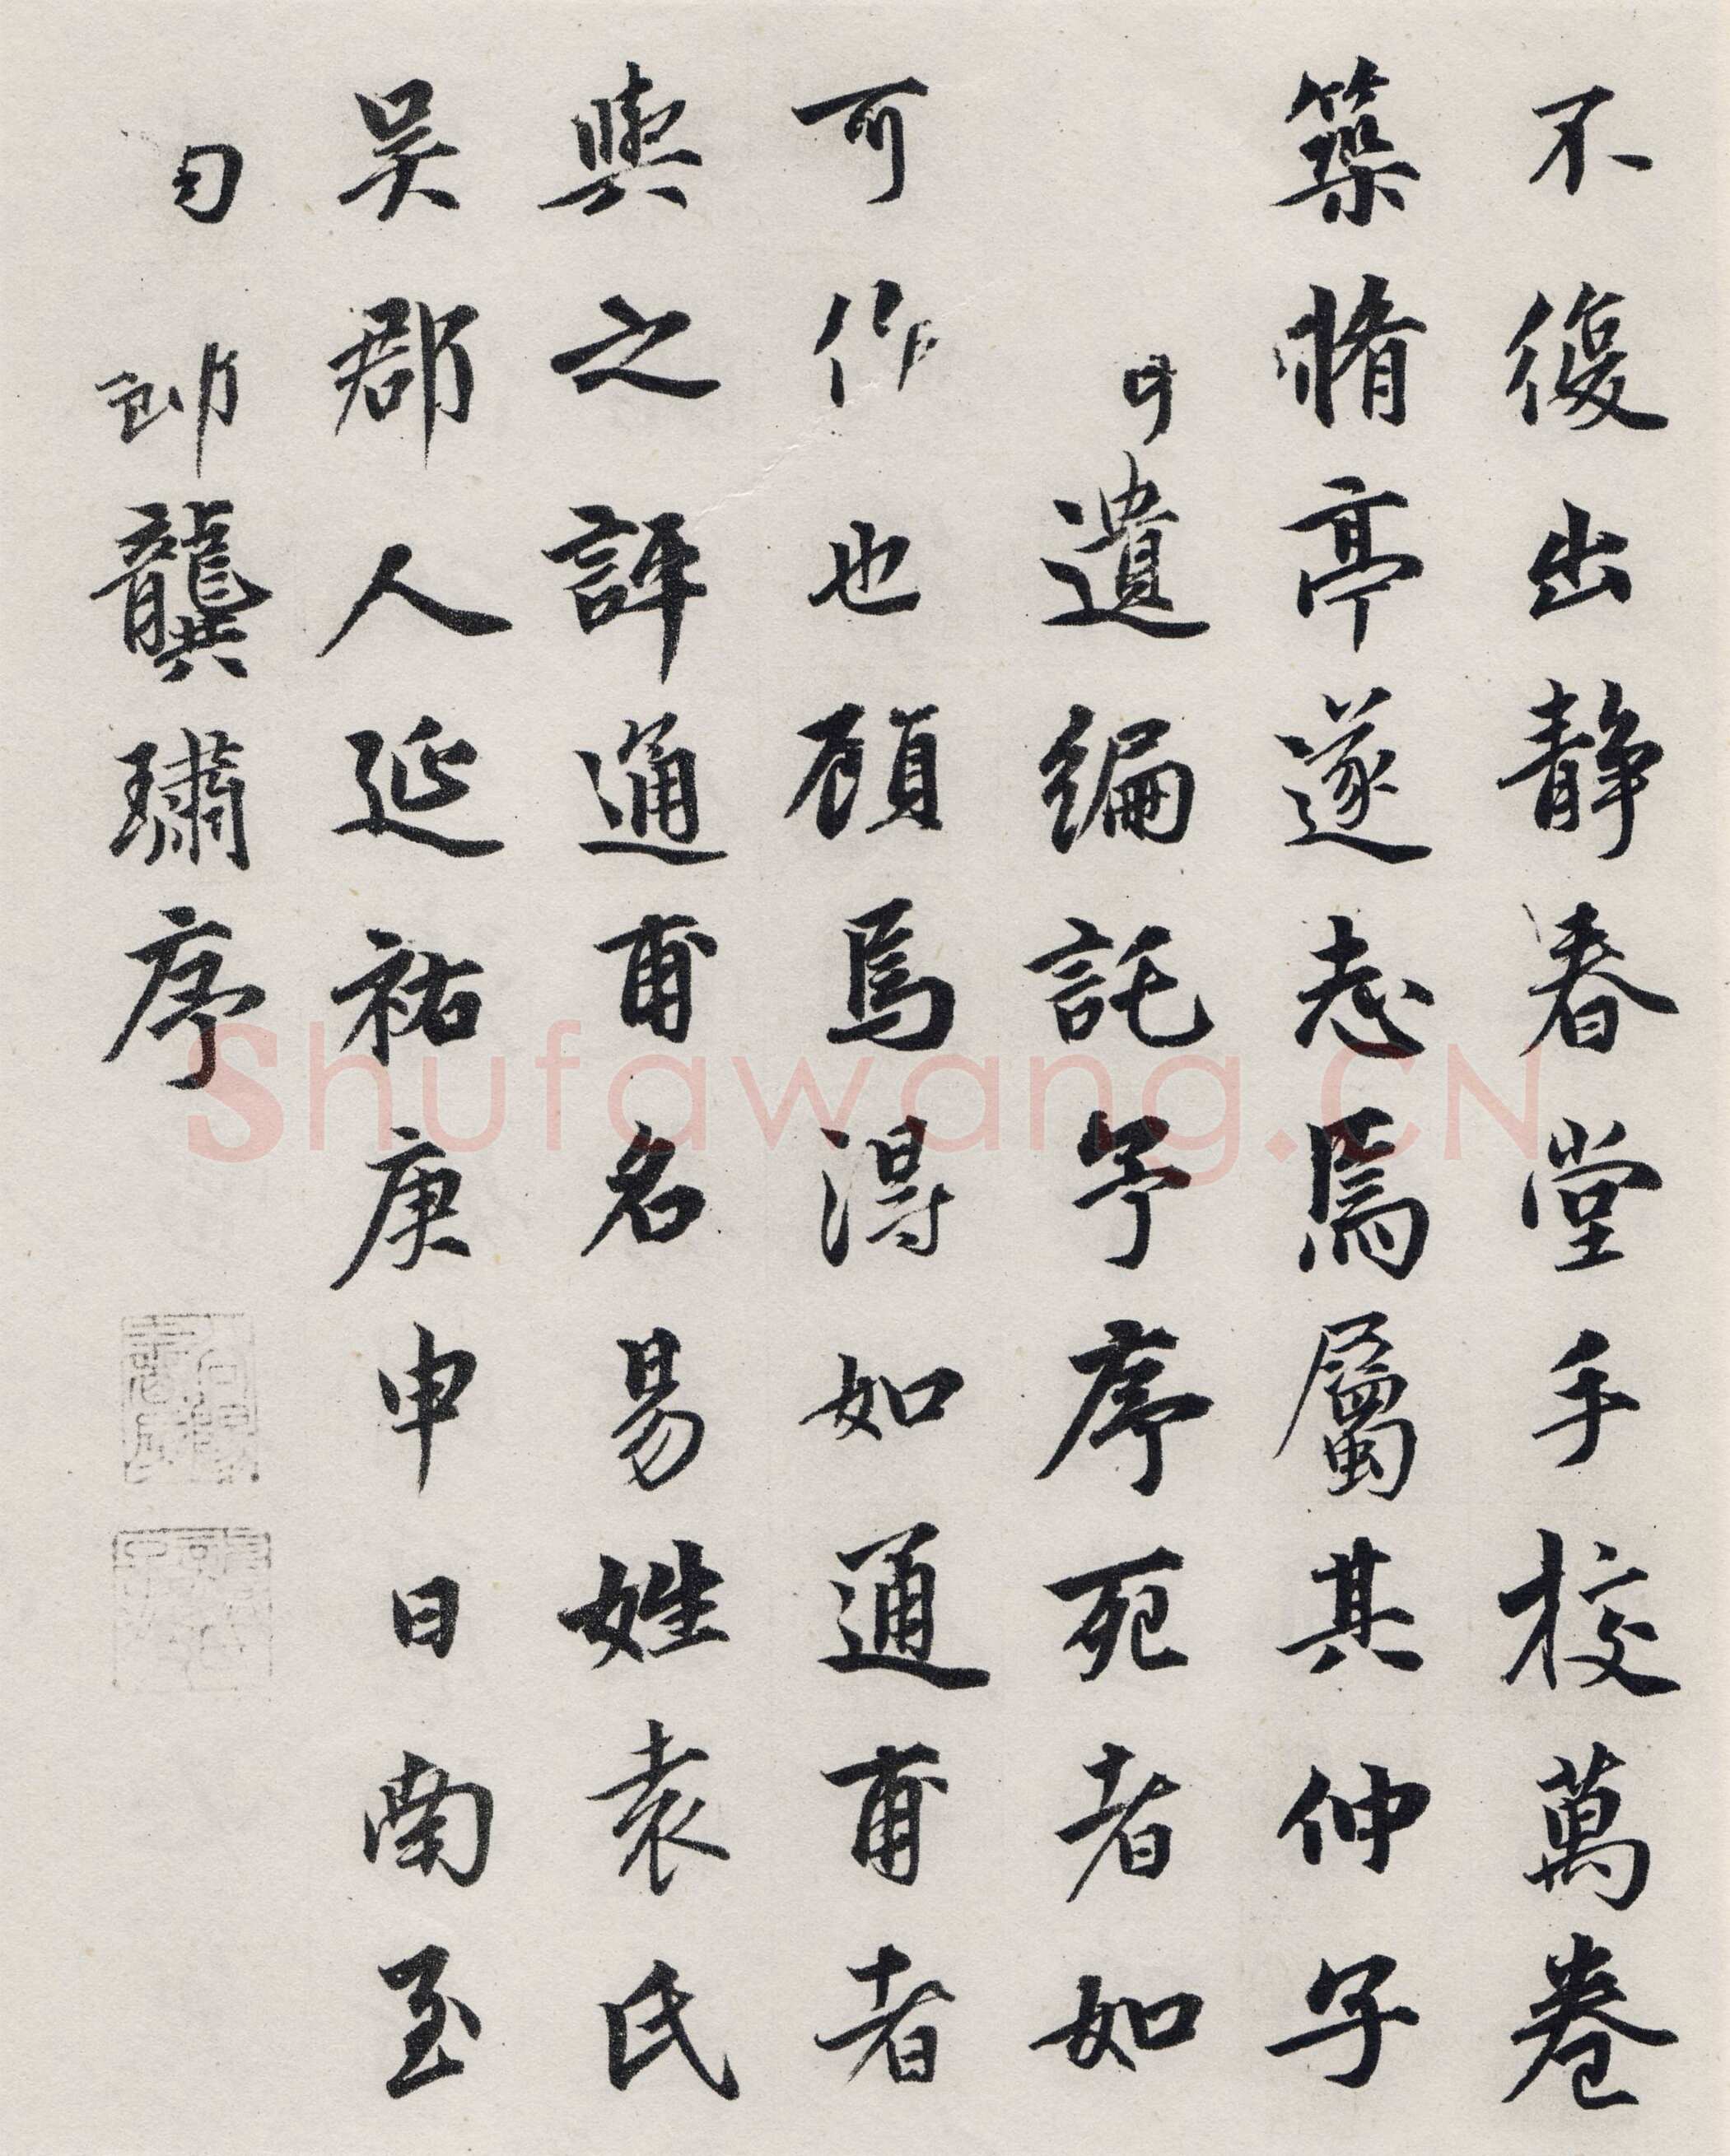 不復出静春堂手校萬卷
築脩亭遂志焉屬其仲子
遺編託予序死者如
可作也顧焉得如通甫者
與之評通甫名易姓袁氏
吴郡人延祐庚申日南至
龔璛序
Shufawang.CN